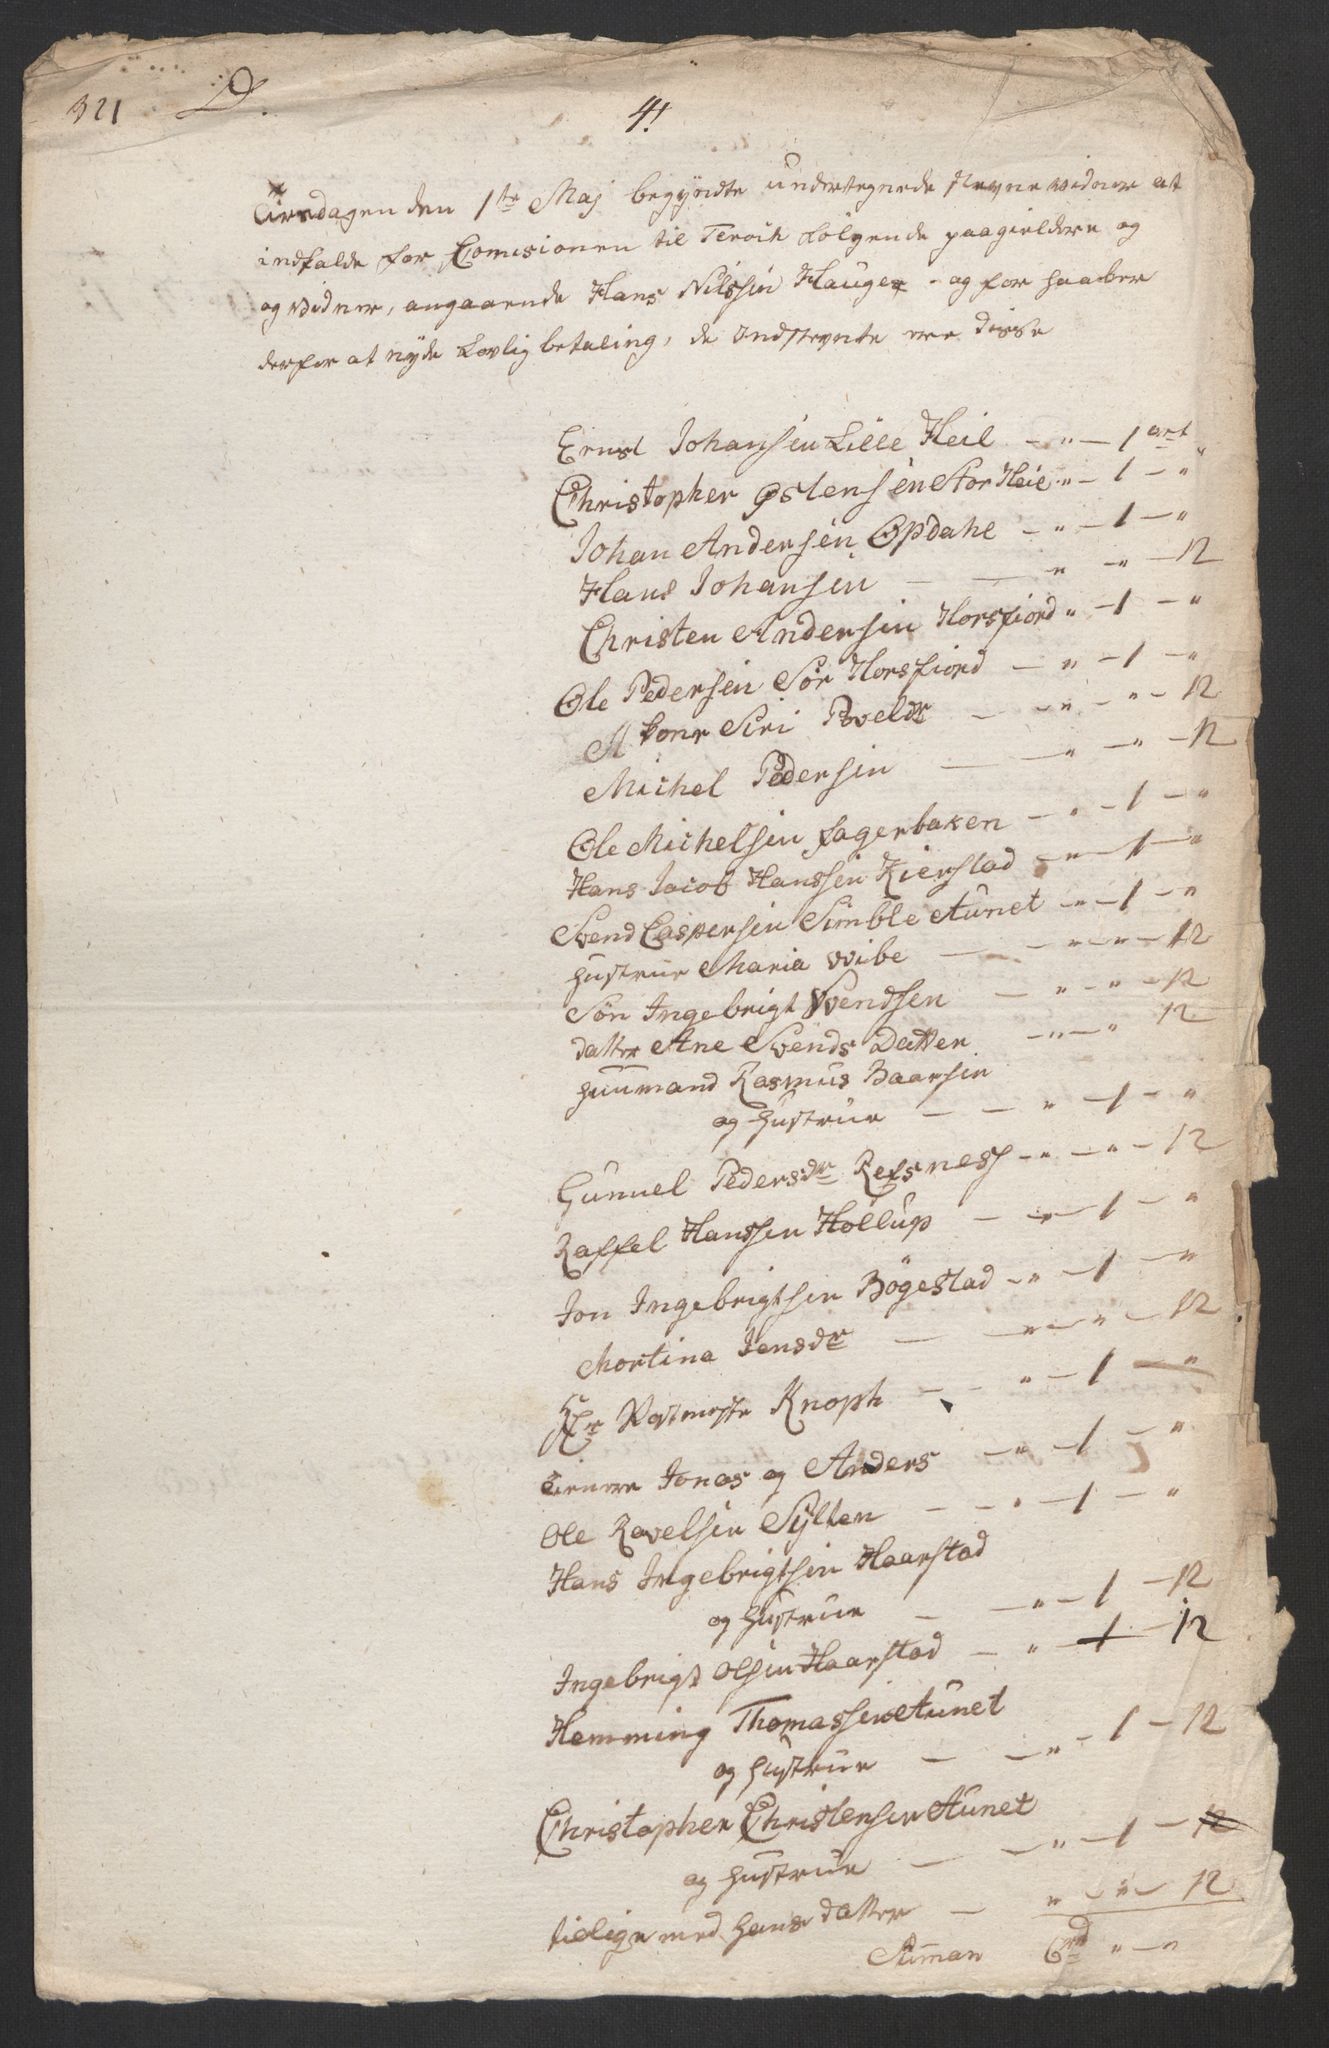 321 D.
4!
Tirsdagen den 1te Maj begyndte undertegnede Stevne vidner at
indkalde for Comisionen til Teroik følgende paagieldere og
og vidner, angaaende Hans Nilssen Hauge - og for haaber
derfor at nyde Lovlig betaling, de Indstevnte ere disse
Ernst Johansen Lille Heil - " - 1 ort
Christopher Østensen Stor Heil " - 1 - "
Johan Andersen Opdahl - " - 1 - "
Hans Johansen - - " - " - 12
Christen Andersen Horsfiord " - 1 - "
Ole Pedersen Sør Horsfiord - " - 1 - "
kone Siri Povelsdr - - " - " - 12
Michel Pedersen - - " - " - 12
Ole Michelsen Fagerbaken - " - 1 - "
Hans Jacob Hanssen Kierstad - " - 1 - "
Svend Caspersen Simble Aunet - " - 1 - "
hustrue Maria Wibe - - " - " - 12
Søn Ingebrigt Svendsen - " - " - 12
datter Ane Svends Datter - " - " 12
huusmand Rasmus Baarsen
og hustrue - - " - 1 - "
Gunnel Pedersdr Refsness - " - " - 12
Raffel Hanssen Hollup - " - 1 - "
Jon Ingebrigtsen Bögestad - " - 1 - "
Mortina Jensdr - - " - " - 12
Hr Postmester Knoph - - " - 1 - "
tienere Jonas og Anders - " - 1 - "
Ole Ravelsen Sylten - - " - 1 - "
Hans Ingebrigtsen Haarstad
og hustrue - - " - 1 - 12
Ingebrigt Olsen Haarstad - " - 1 - 12
Hemming Thomassen Aunet
og hustrue - - " - 1 - 12
Christopher Christensen Aunet
og hustrue - - " - 1 - 12
tillige med hans datter - " - " - 12
Summan 6 rd " - "